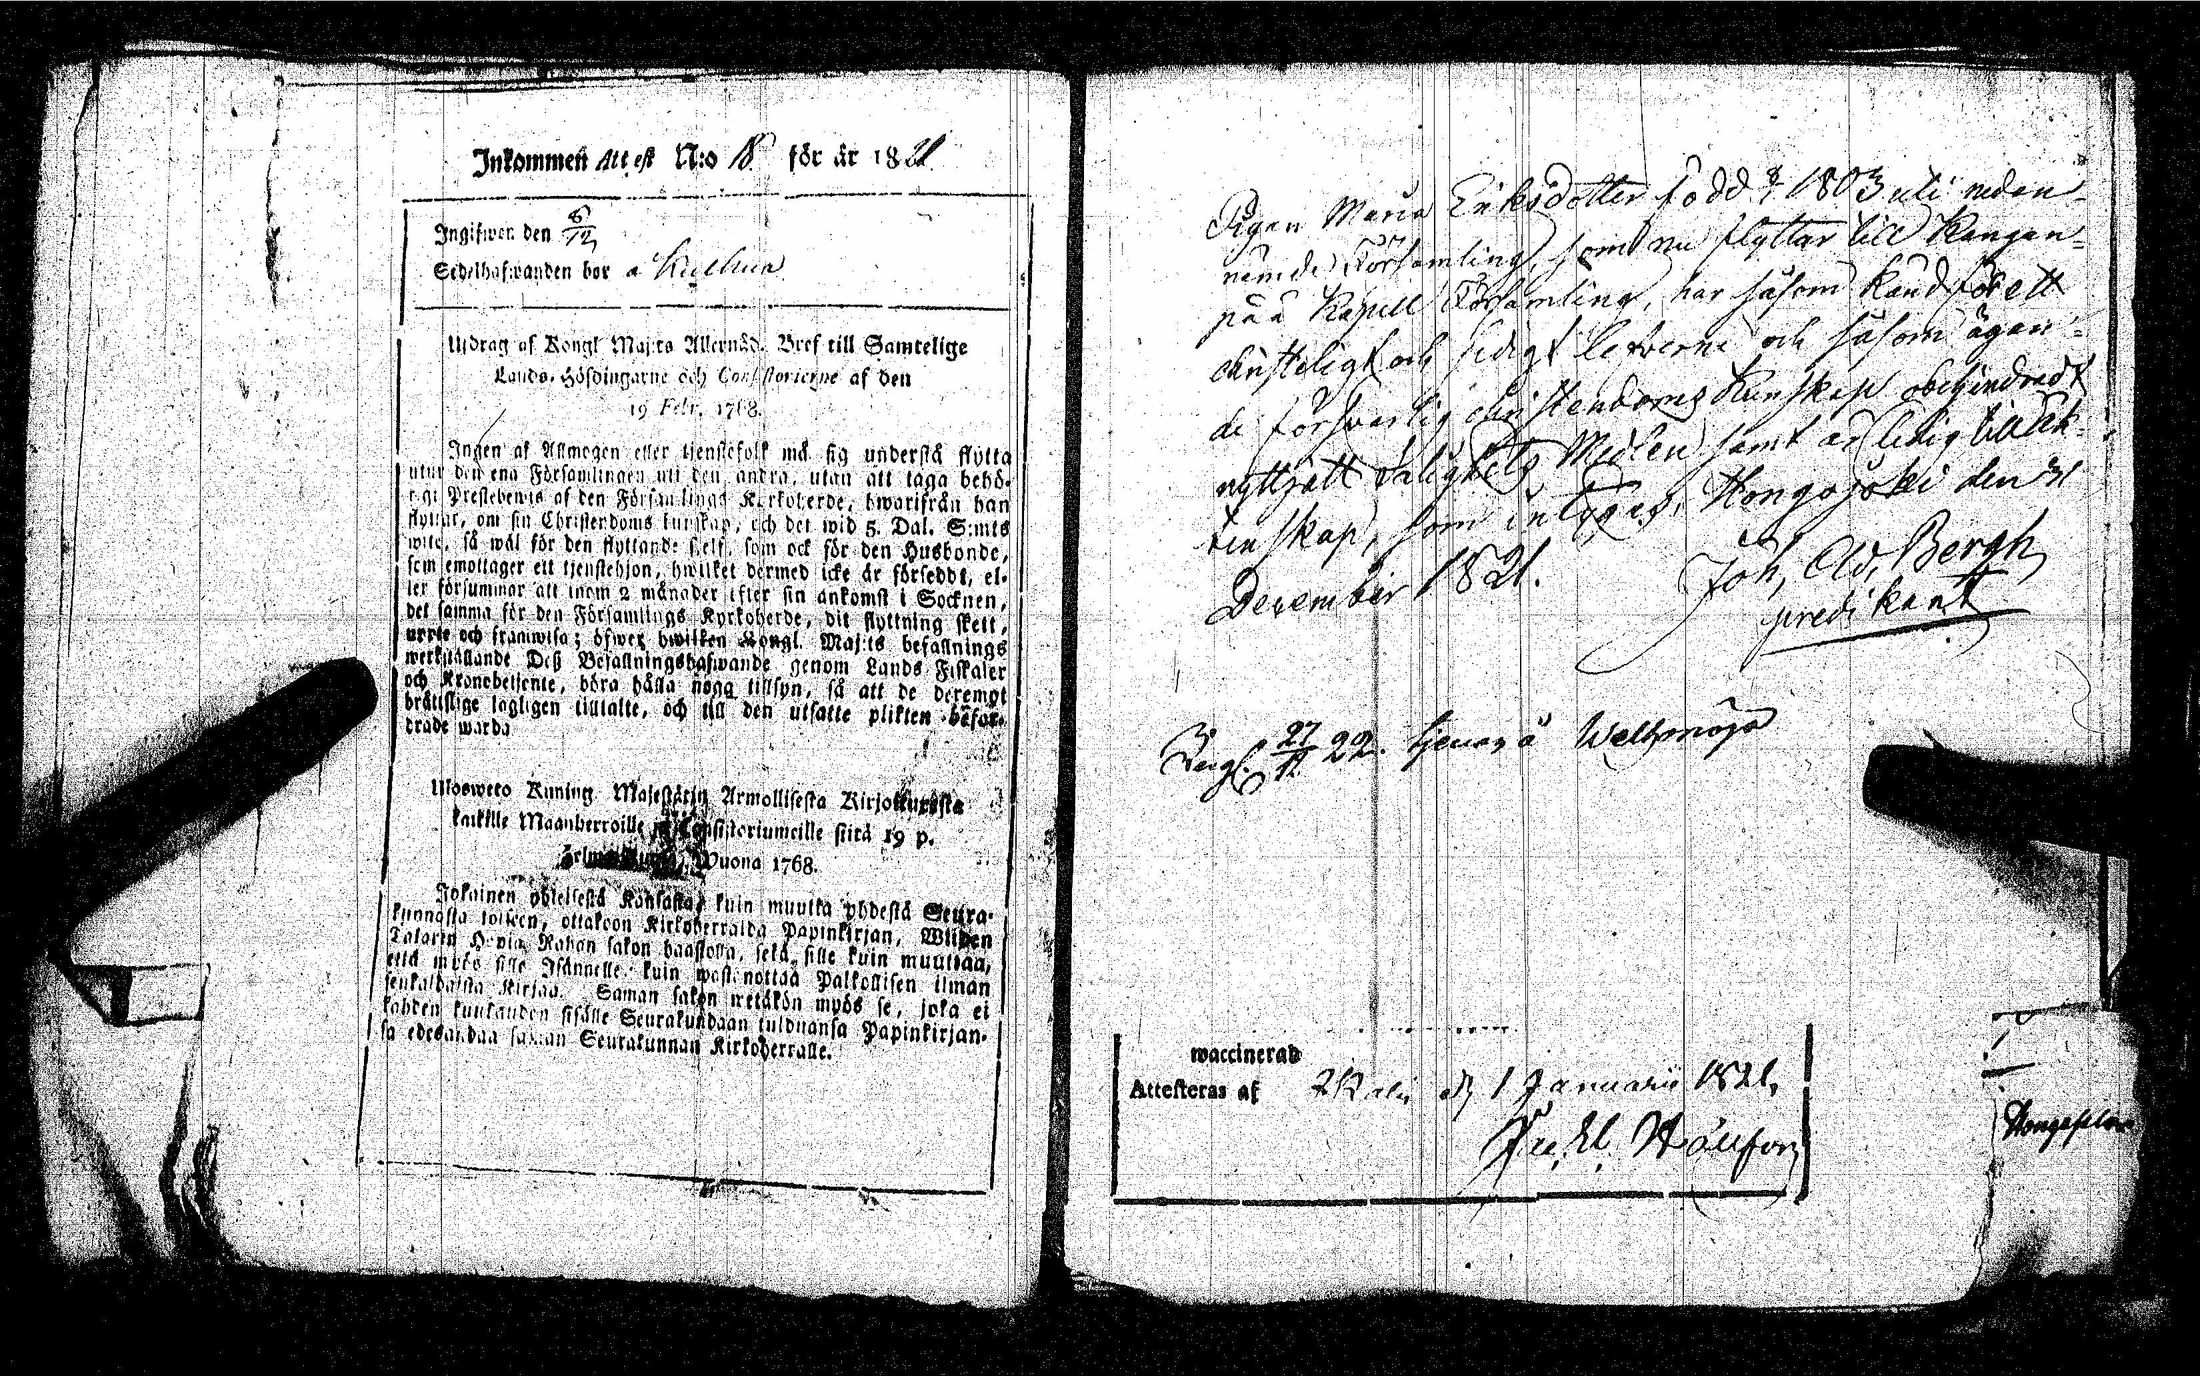 Inkommen Attest N:o 18 för år 1821
Ingifwen den 8/12
Sedelhafwanden bor a
Utdrag af Kongl Maj:ts Allernåd. Bref till Samtelige
Lands-Höfdingarne och Consistorierne af den
19 Febr. 1768.
Ingen af Allmogen eller tjenstefolk må sig understå flytta
utur den ena Församlingen uti den andra, utan att taga behö-
rigt Prestebewis af den Församlings Kyrkoherde, hwarifrån han
flyttar, om sin Christendoms kunskap, och det wid 5. Dal. S:mts
wite, så wäl för den flyttande sjelf, som ock för den Husbonde,
som emottager ett tjenstehjon, hwilket dermed icke är försedt, el-
ler försummar att inom 2 månader efter sin ankomst i Socknen,
det samma för den Församlings Kyrkoherde, dit flyttning skett,
upte och framwisa; öfwer hwilken Kongl. Maj:ts befallnings
werkställande Deß Befallningshafwande genom Lands Fiskaler
och Kronobetjente, böra hålla noga tillsyn, så att de deremot
brottslige lagligen tilltalte, och till den utsatte plikten befor-
drade warda
Ulosweto Kuning Majestätin Armollisesta Kirjoituxesta
kaikille Maanherroille ja Consistoriumeille siitä 19 p.
Wuona 1768.
Jokainen yhteisestä Kansasta, kuin muutta yhdestä Seura-
kunnasta toiseen, ottakoon Kirkoherralda Papinkirjan, Wiiden
Talarin Hopia Rahan sakon haastolla, sekä sille kuin muuttaa,
että myös sille Isännelle, kuin wastanottaa Palkollisen ilman
senkaldaista Kirjaa. Saman sakon wetäkön myös se, joka ei
kahden kuukauden sisälle Seurakundaan tulduansa Papinkirjan-
sa edesandaa saman Seurakunnan Kirkoherralle.
Pigan Maria Eriksdotter född 1803 uti nedan-
nämde Församling, som nu flyttar till Kangan-
pää Kapell Församling, har såsom känd för ett
christeligt och sedigt lefverne och såsom ägan-
de försvarlig christendoms Kunskap obehindradt
nyttjatt Salighets Medlen samt är ledig till äk-
tenskap, som intygas, Hongojoki den
December 1821. Joh, Ad, Bergh
predikant
27/11 22. tjenar å
waccinerad
Attesteras af 1 Januarii 1821,